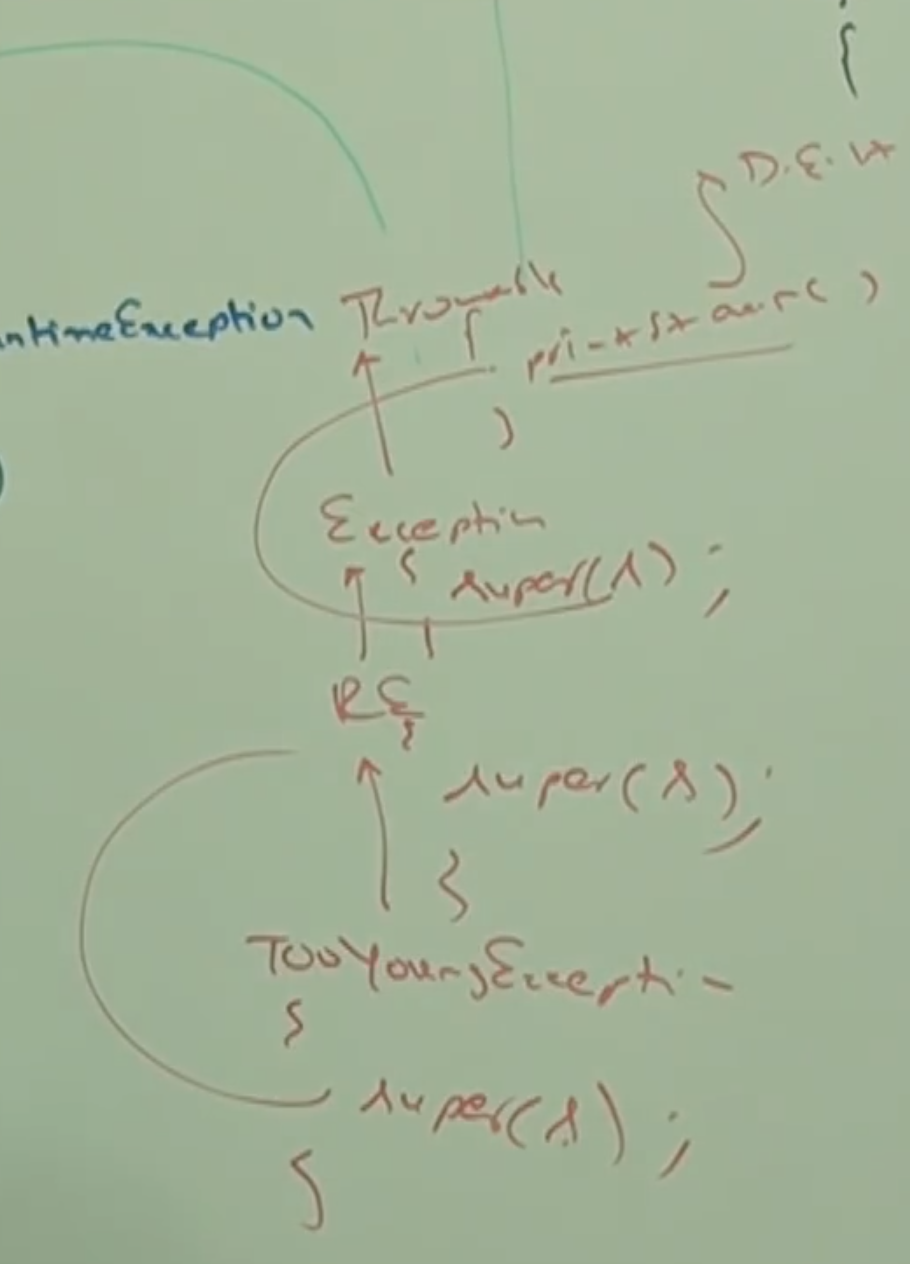 {
D.E.
ntimeException Throwable
{
printSt ( )
}
Exception
{ super(s) ;
RE
{
super(s) ;
}
TooYoungException
{
super(s) ;
}